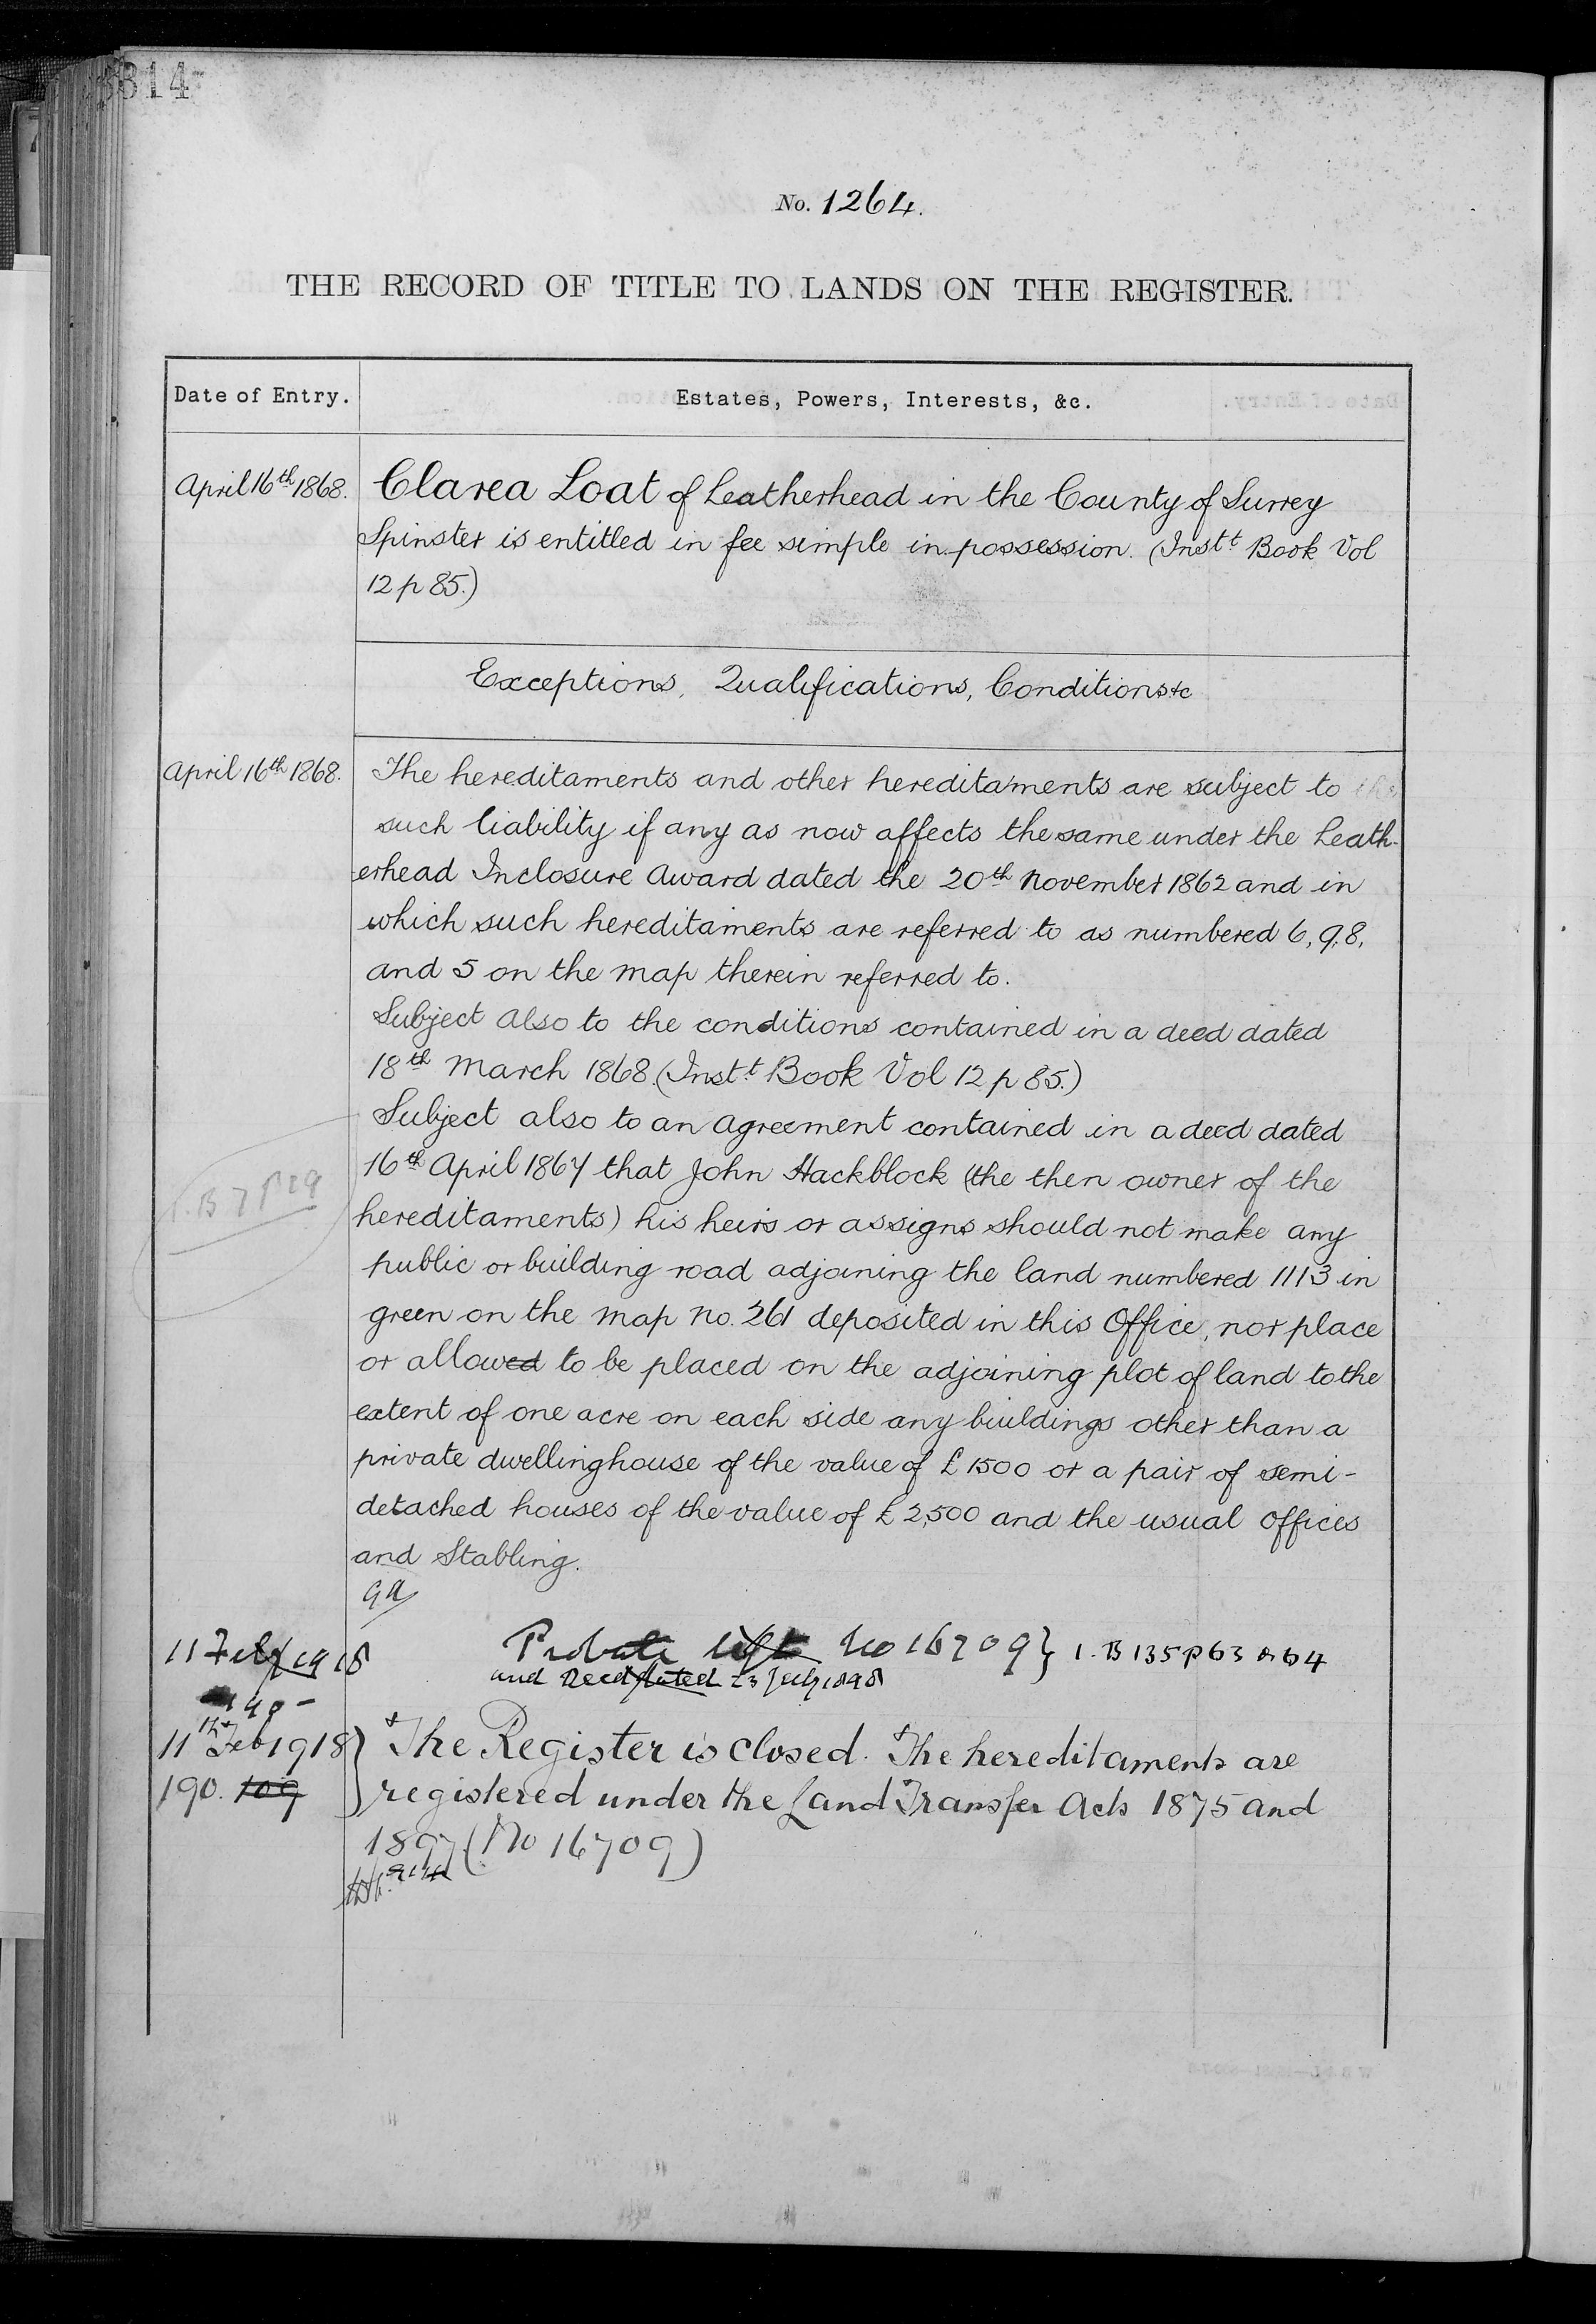 814
No. 1264.
THE RECORD OF TITLE TO LANDS ON THE REGISTER.
Date of Entry. Estates, Powers, Interests, &c.
April 16th 1868. Clarea Loat of Leatherhead in the County of Surrey
Spinster is entitled in fee simple in possession. (Instt Book Vol
12 p 85.)
Exceptions, Qualifications, Conditions &c
April 16th 1868. The hereditaments and other hereditaments are subject to the
such liability if any as now affects the same under the Leath-
erhead Inclosure Award dated the 20th November 1862 and in
which such hereditaments are referred to as numbered 6, 9, 8,
and 5 on the map therein referred to.
Subject also to the conditions contained in a deed dated
18th March 1868. (Instt Book Vol 12 p 85.)
Subject also to an agreement contained in a deed dated
16th April 1867 that John Hackblock (the then owner of the
I. B 7 P 29
hereditaments) his heirs or assigns should not make any
public or building road adjoining the land numbered 1113 in
green on the map no. 261 deposited in this Office, nor place
or allowed to be placed on the adjoining plot of land to the
extent of one acre on each side any buildings other than a
private dwellinghouse of the value of £1500 or a pair of semi-
detached houses of the value of £2,500 and the usual offices
and Stabling.
11 Feby 1918 Probate left No 16709} I. B 135 p 63 & 64
and Deed dated 23 July 1898
190
11th Feb 1918} The Register is closed. The hereditaments are
190. 109 registered under the Land Transfer Acts 1875 and
1897. (No 16709)